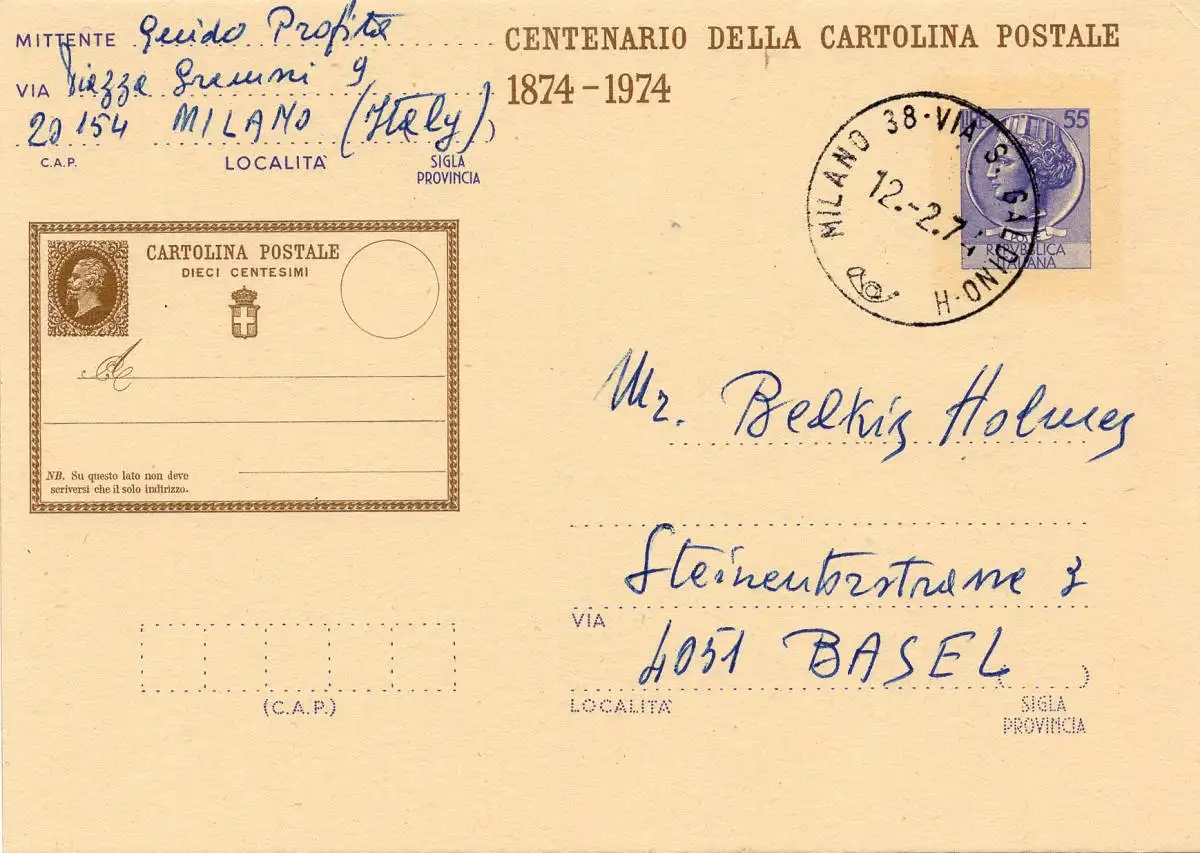 MITTENTE Guido Profita
VIA Piazza Gramsci 9
20154 MILANO (Italy)
C.A.P. LOCALITÀ SIGLA PROVINCIA
CENTENARIO DELLA CARTOLINA POSTALE
1874-1974
MILANO 38-VIA S. GALDINO-H
12.-2.7
LIRE 55
POSTE
REPVBBLICA
ITALIANA
CARTOLINA POSTALE
DIECI CENTESIMI
A
NB. Su questo lato non deve
scriversi che il solo indirizzo.
Mr. Bedkis Holmes
Steinentorstrasse 3
VIA
4051 BASEL ( )
LOCALITÀ
SIGLA
PROVINCIA
(C.A.P.)